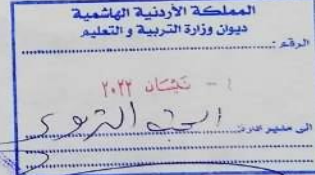 المملكة الأردنية الهاشمية
ديوان وزارة التربية و التعليم
الرقم :
١ - نيسان ٢٠٢٢
الى مدير ادارة البحث التربوي